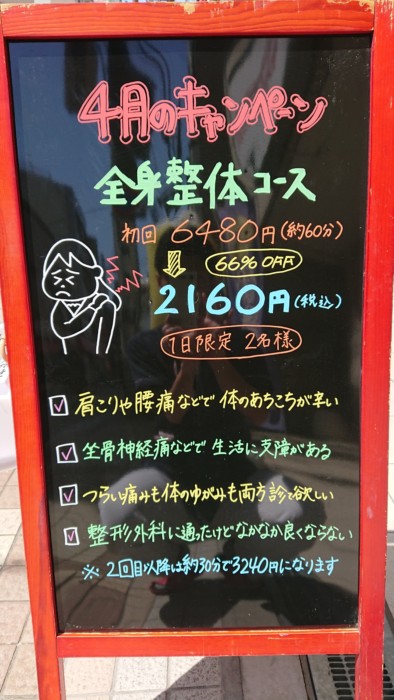 4月のキャンペーン
全身整体コース
初回 6480円(約60分)
66% OFF
2160円(税込)
1日限定 2名様
肩こりや腰痛などで 体のあちこちが辛い
坐骨神経痛などで 生活に支障がある
つらい痛みも体のゆがみも両方診て欲しい
整形外科に通ったけどなかなか良くならない
※ 2回目以降は約30分で3240円になります